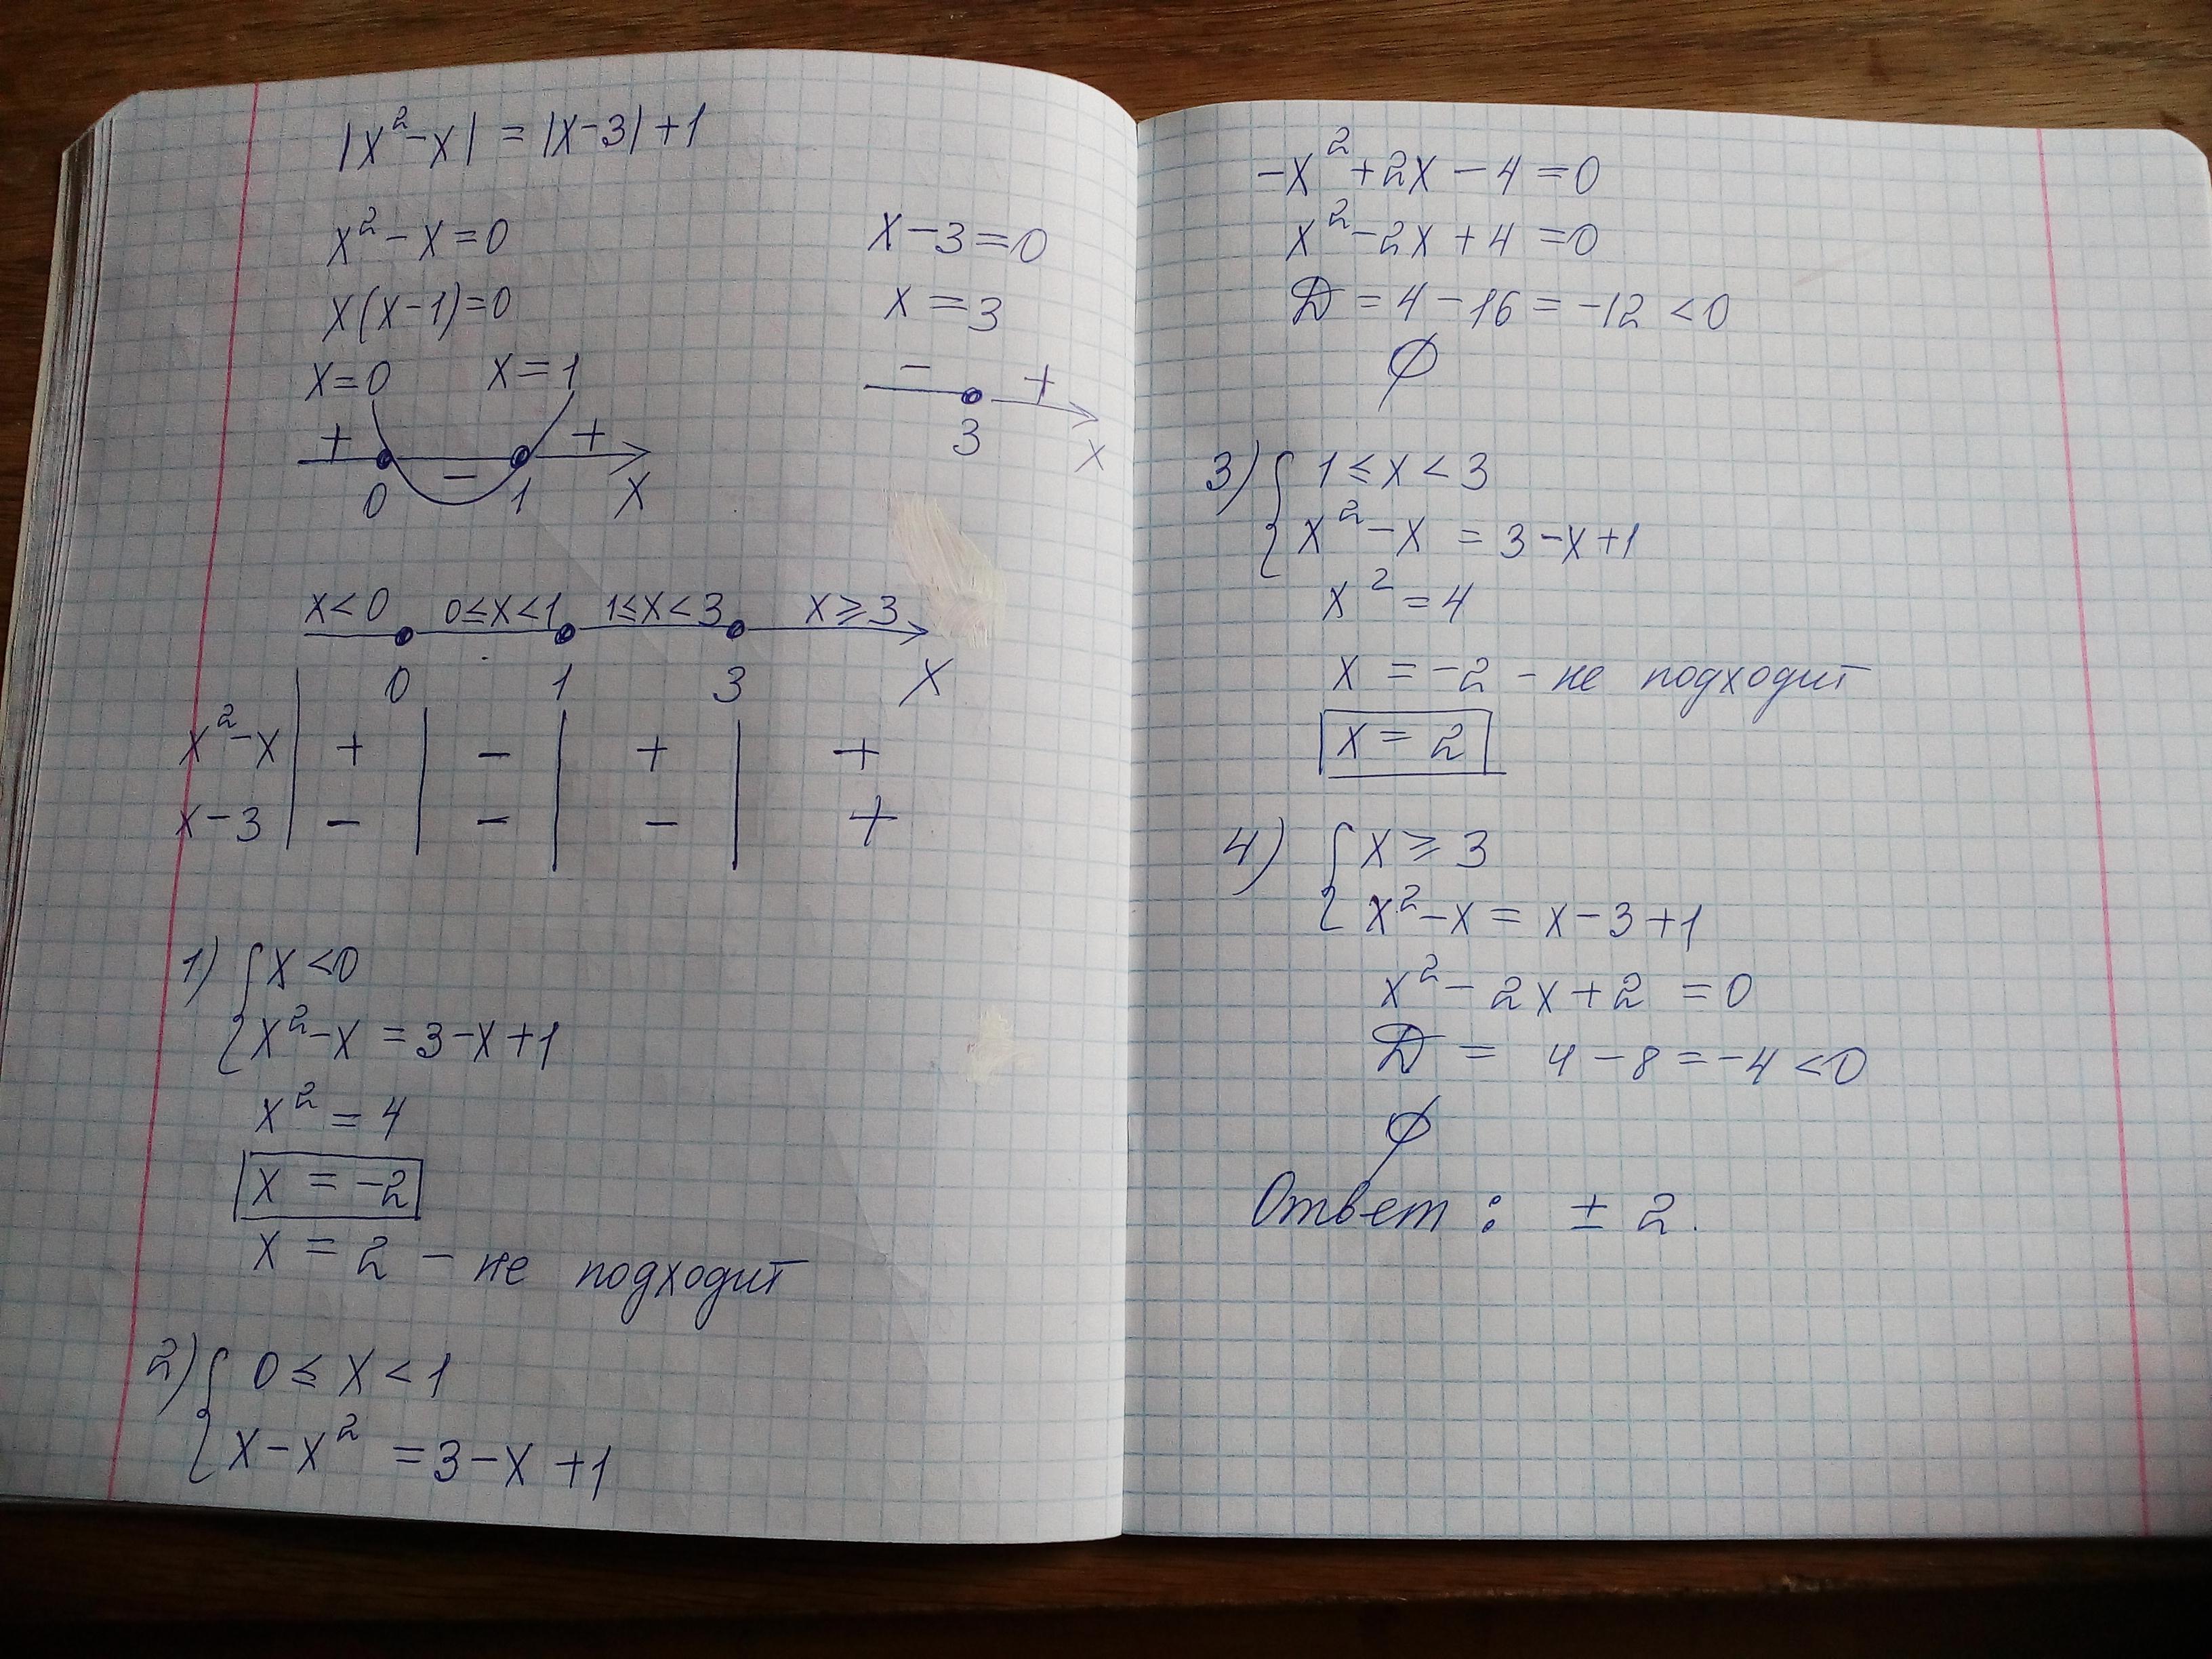 |x²-x| = |x-3|+1
x²-x=0
x(x-1)=0
x=0 x=1
+ - +
0 1 x
x-3=0
x=3
- +
3 x
x<0 0≤x<1 1≤x<3 x≥3
0 1 3 x
x²-x + - + +
x-3 - - - +
1) { x<0
x²-x=3-x+1
x²=4
x=-2
x=2 - не подходит
2) { 0≤x<1
x-x²=3-x+1
-x²+2x-4=0
x²-2x+4=0
D=4-16=-12<0
∅
3) { 1≤x<3
x²-x=3-x+1
x²=4
x=-2 - не подходит
x=2
4) { x≥3
x²-x=x-3+1
x²-2x+2=0
D=4-8=-4<0
∅
Ответ: ±2.